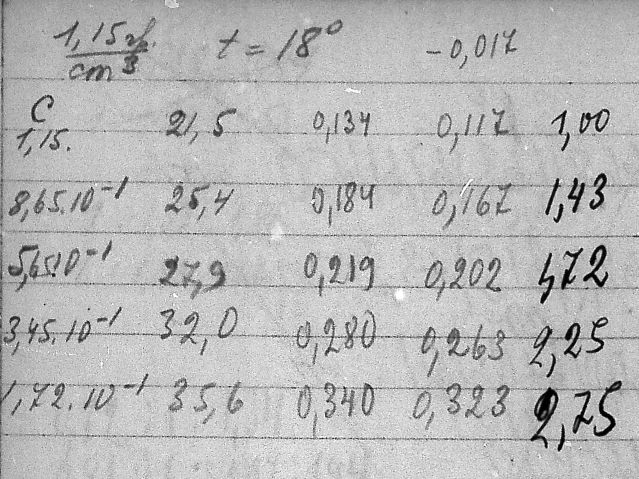 1,15 гр. t = 18° -0,017
cm³
C
1,15. 21,5 0,134 0,117 1,00
8,65.10⁻¹ 25,4 0,184 0,167 1,43
5,65.10⁻¹ 27,9 0,219 0,202 1,72
3,45.10⁻¹ 32,0 0,280 0,263 2,25
1,72.10⁻¹ 35,6 0,340 0,323 2,75